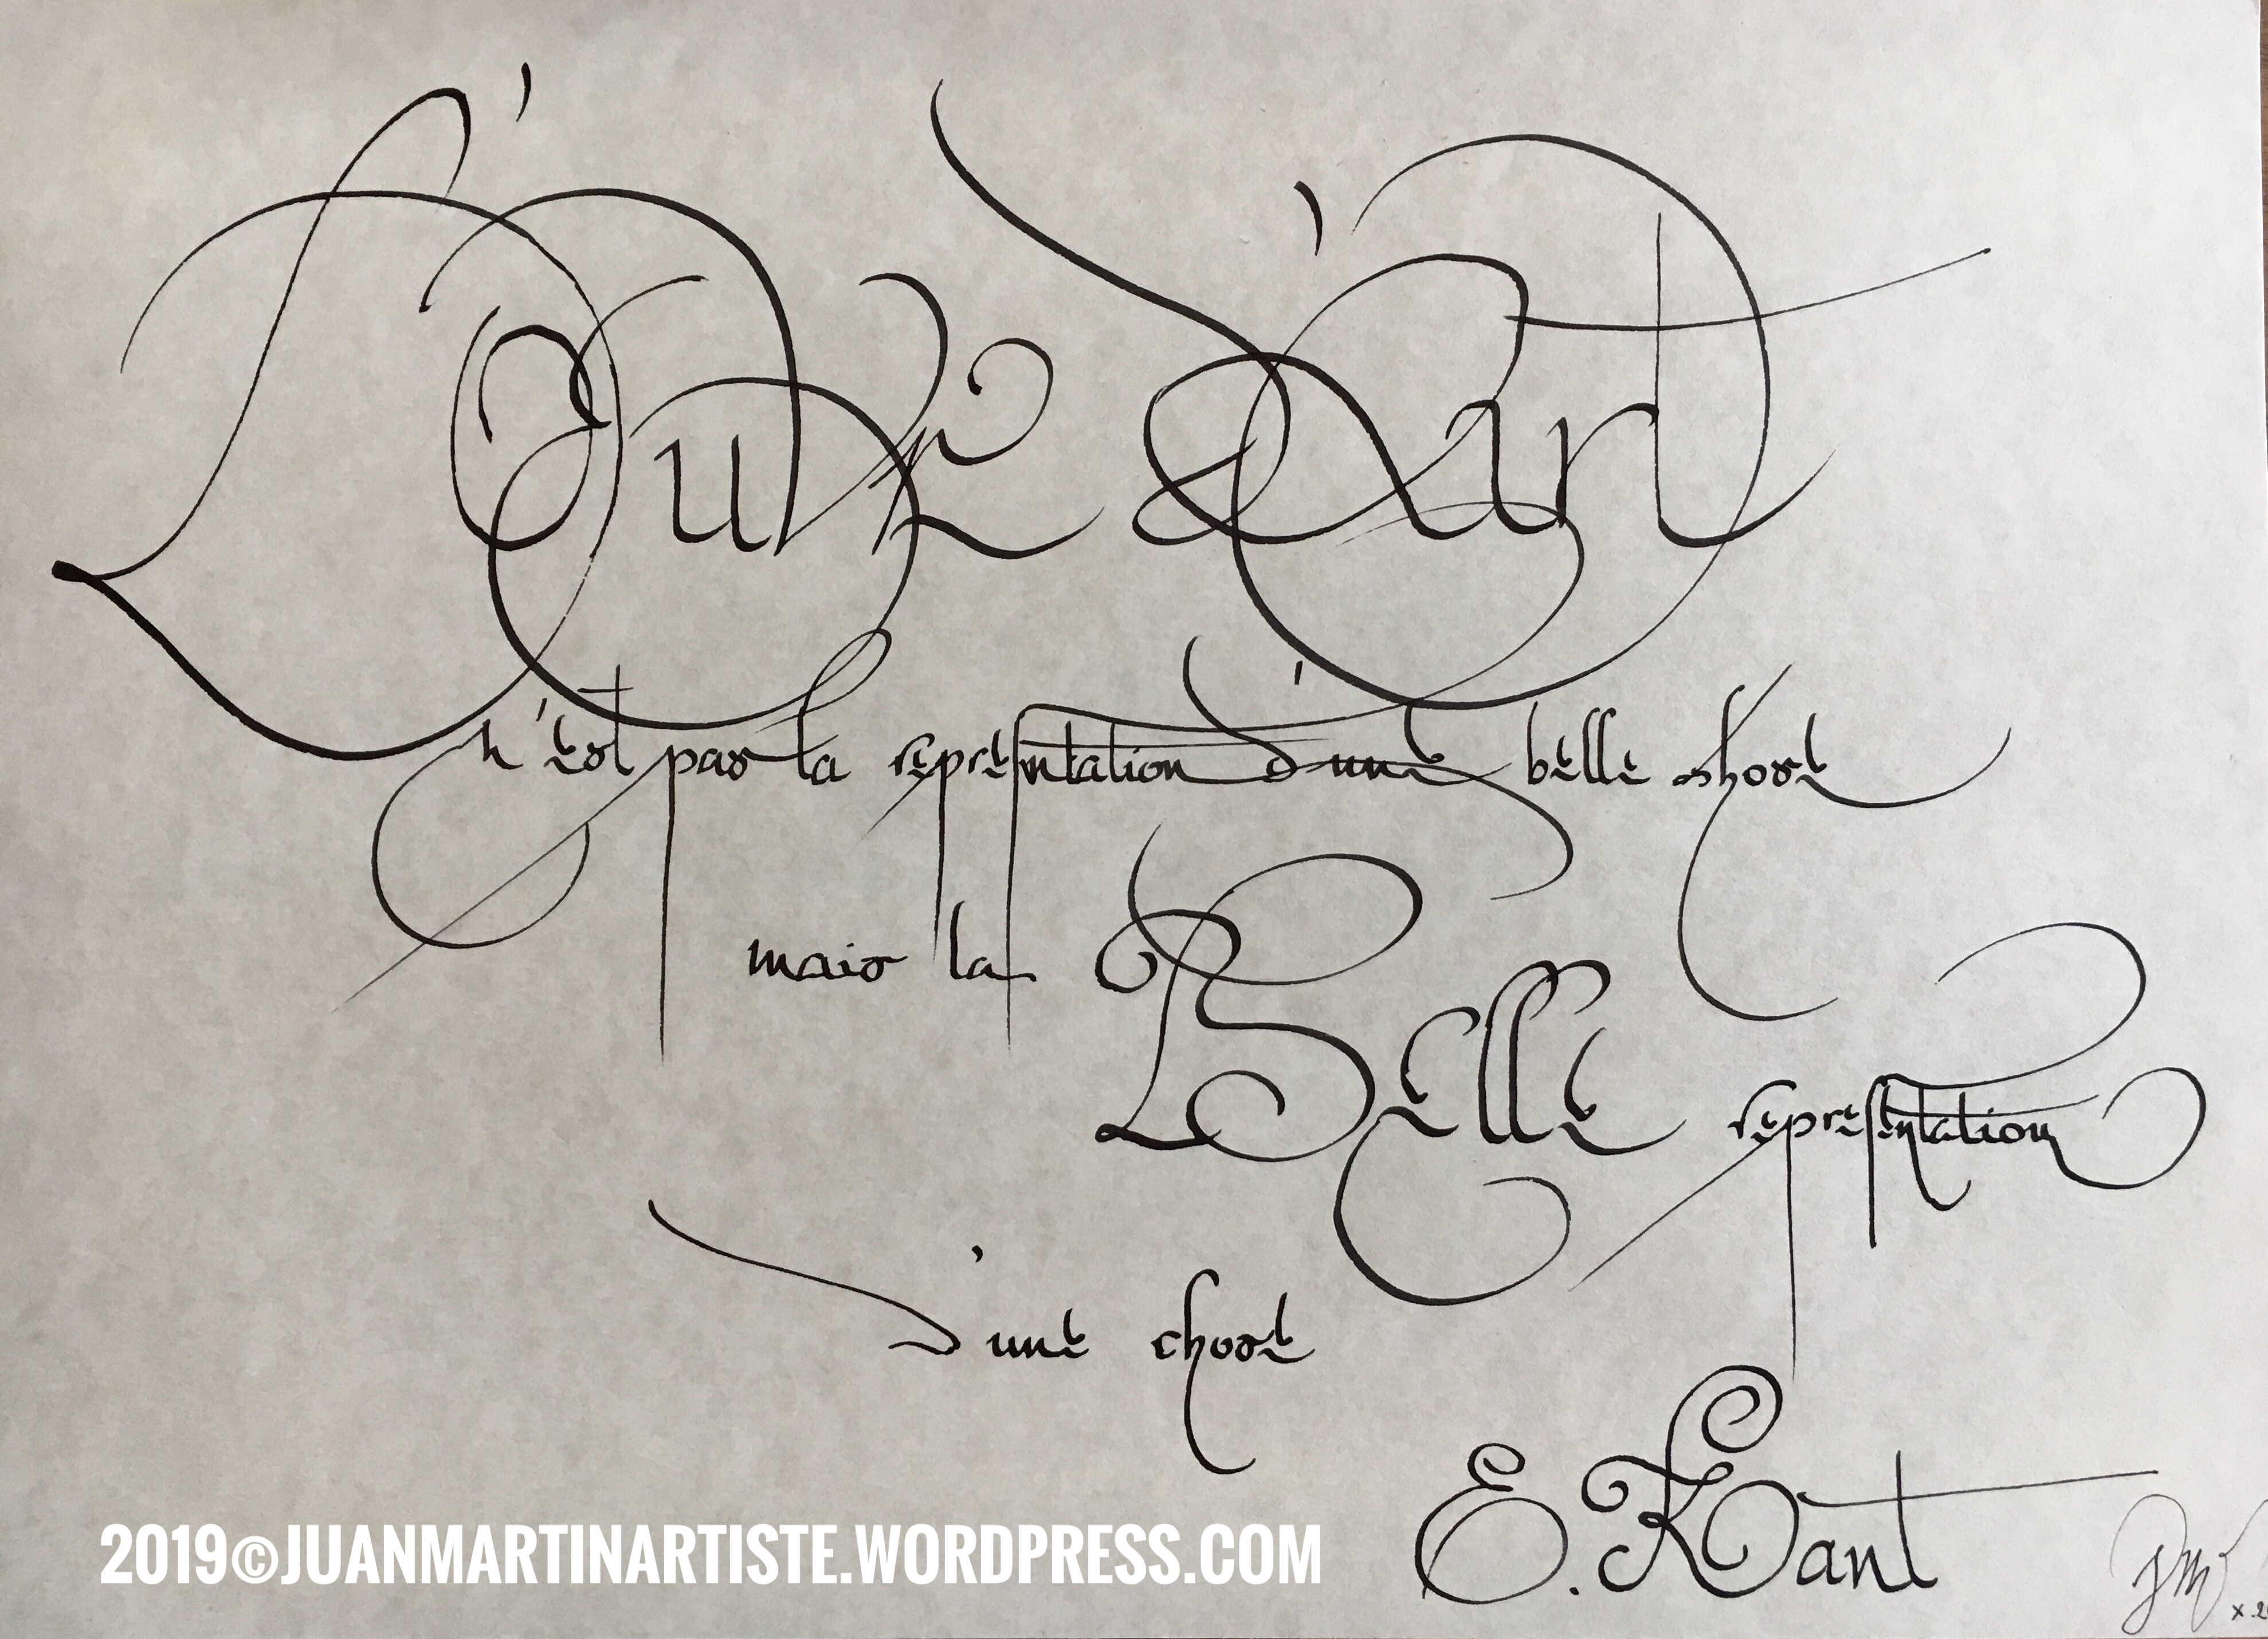 L'Œuvre d'art
n'est pas la representation d'une belle chose
mais la Belle representation
d'une chose
E. Kant
2019©JUANMARTINARTISTE.WORDPRESS.COM